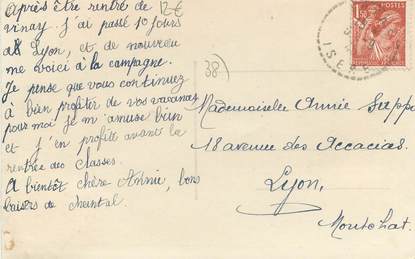 Après être rentré de
vinay. j'ai passé 10 jours
à Lyon, et de nouveau
me voici à la campagne.
Je pense que vous continuez
à bien profiter de vos vacances
pour moi je m'amuse bien
et j'en profite avant la
rentrée des classes.
A bientôt chère Annie, bons
baisers de chantal.
12€
38)
1F50
ISERE
Mademoiselle Annie
18 avenue des Accacias
Lyon,
Montchat.